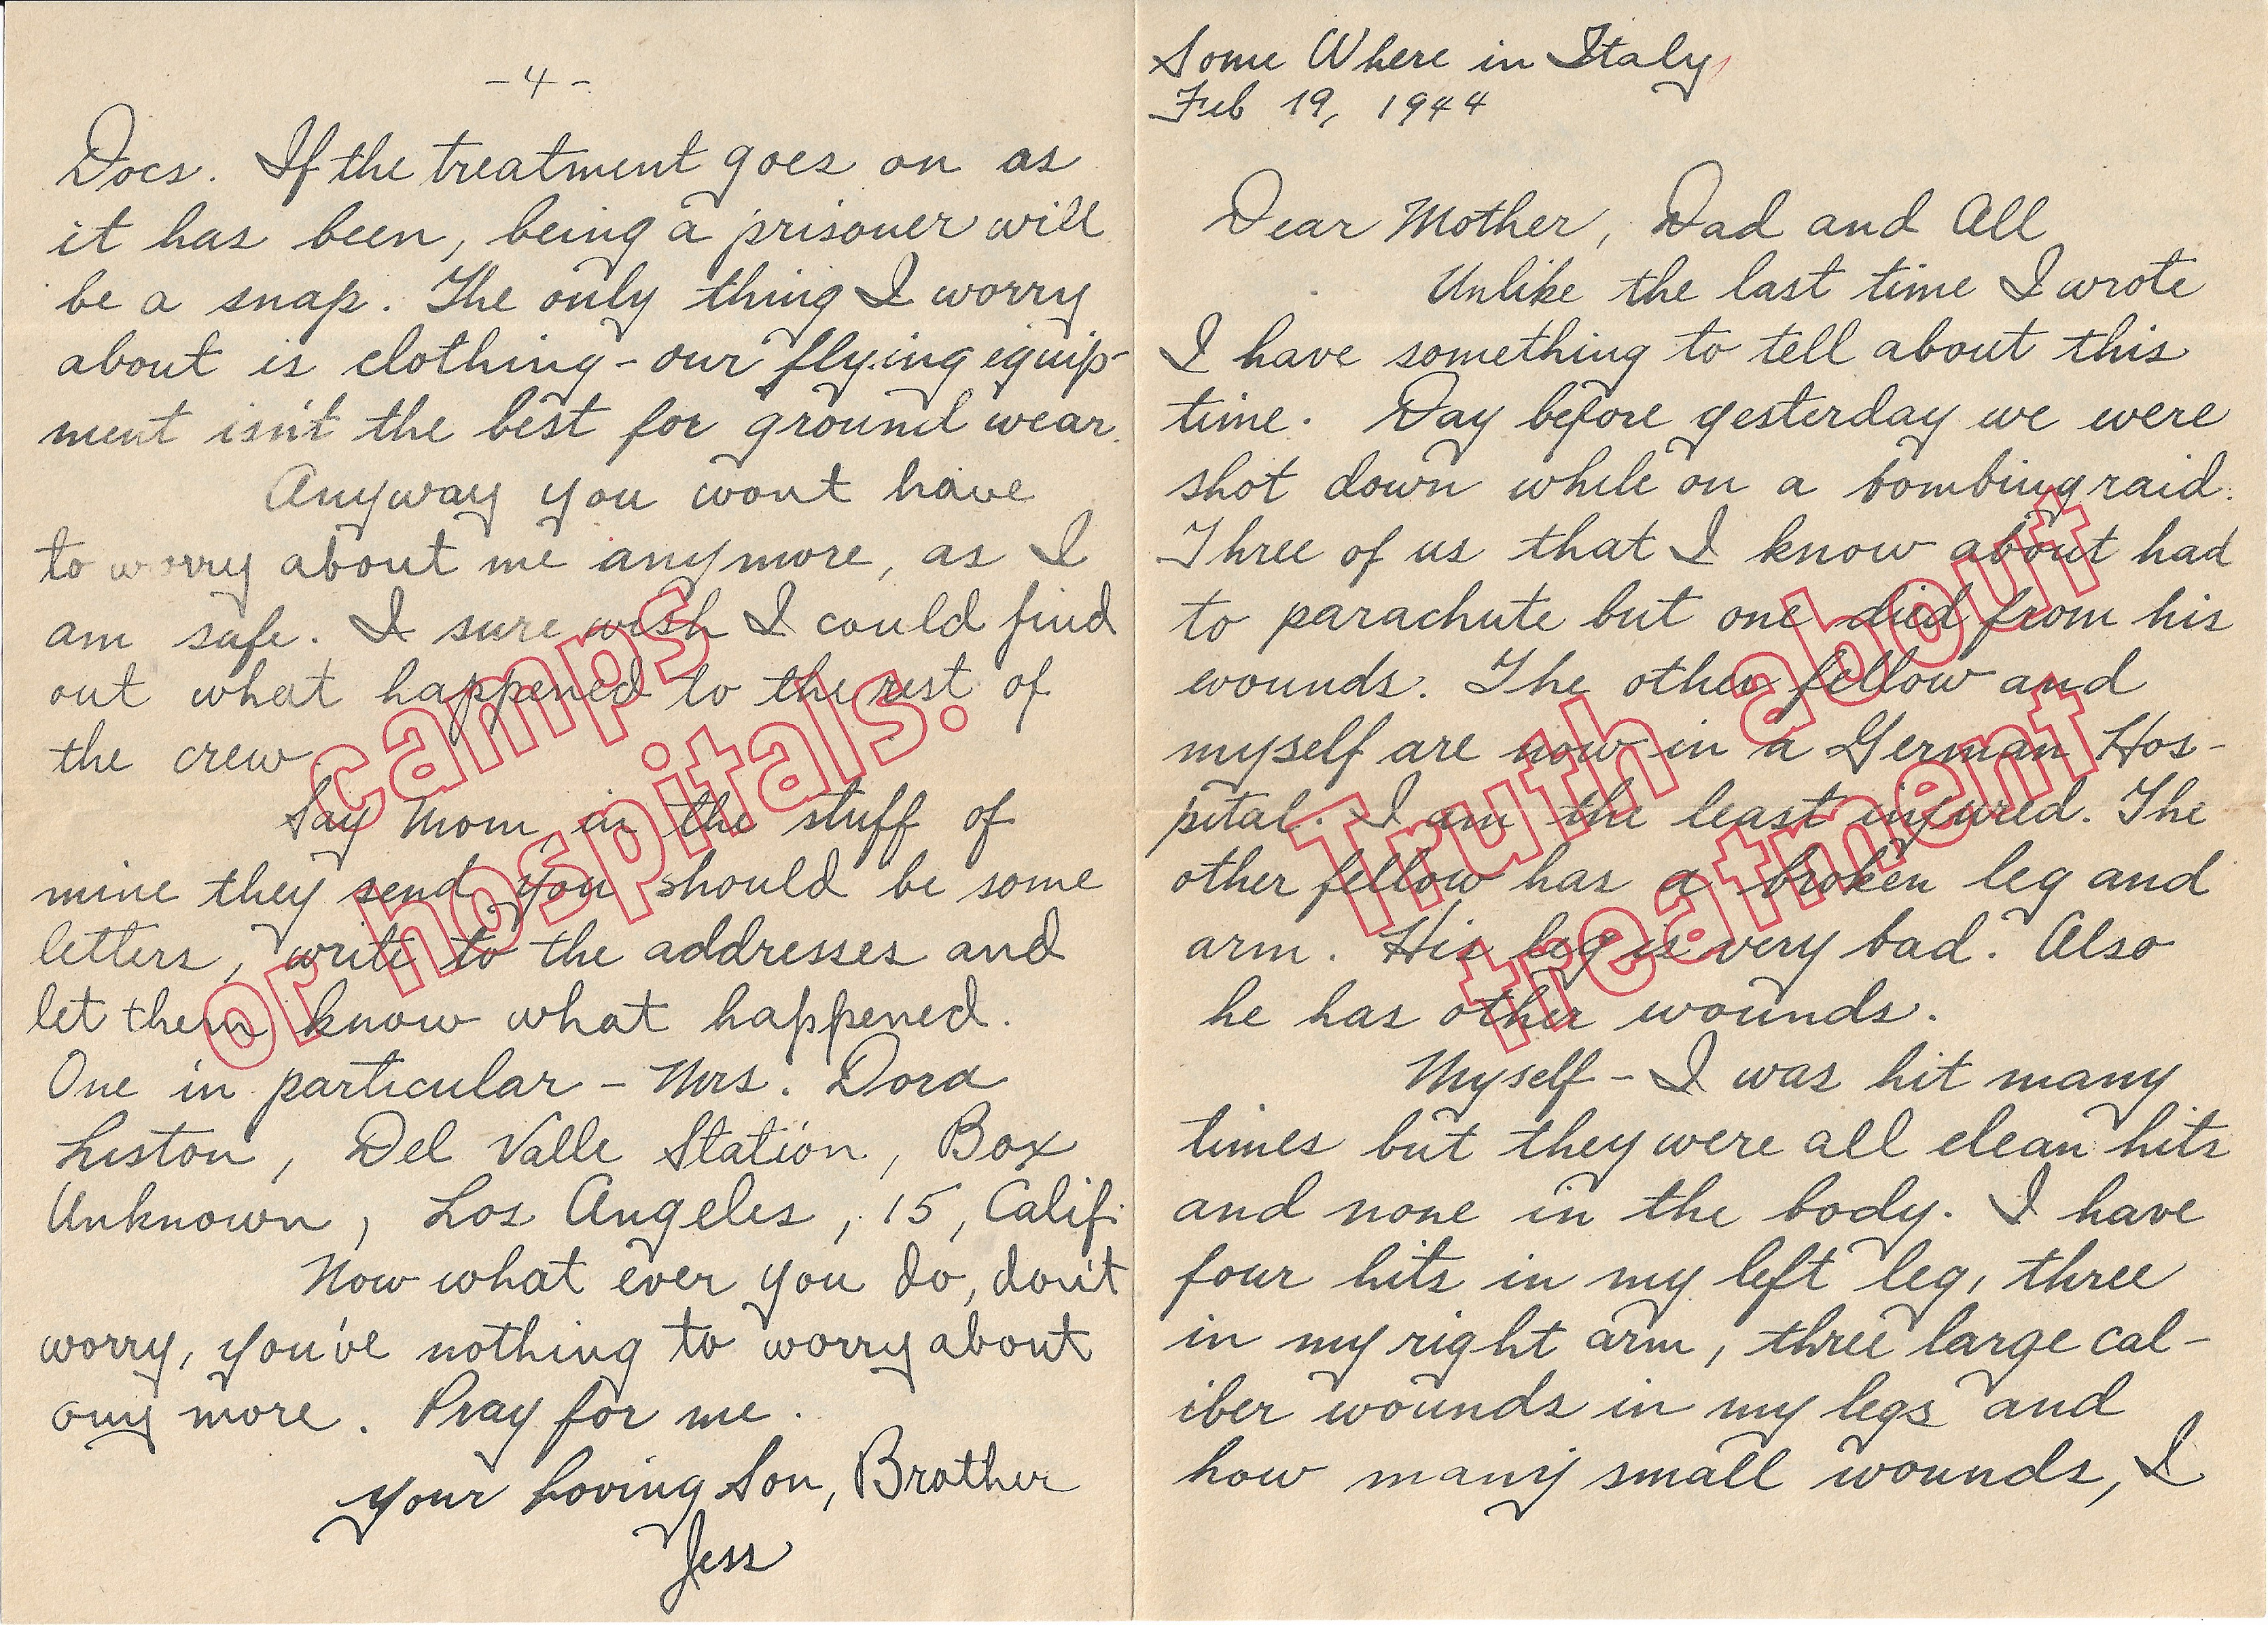 -4-
Docs. If the treatment goes on as
it has been, being a prisoner will
be a snap. The only thing I worry
about is clothing - our flying equip-
ment isn't the best for ground wear.
Anyway you wont have
to worry about me anymore, as I
am safe. I sure wish I could find
out what happened to the rest of
the crew.
Say Mom in the stuff of
mine they send you should be some
letters, write to the addresses and
let them know what happened.
One in particular - Mrs. Dora
Liston, Del Valle Station, Box
Unknown, Los Angeles, 15, Calif.
Now what ever you do, don't
worry, you've nothing to worry about
any more. Pray for me.
Your Loving Son, Brother
Jess
camps
or hospitals.
Some Where in Italy
Feb 19, 1944
Dear Mother, Dad and All
Unlike the last time I wrote
I have something to tell about this
time. Day before yesterday we were
shot down while on a bombing raid.
Three of us that I know about had
to parachute but one died from his
wounds. The other fellow and
myself are now in a German Hos-
pital. I am the least injured. The
other fellow has a broken leg and
arm. His leg is very bad. Also
he has other wounds.
Myself - I was hit many
times but they were all clean hits
and none in the body. I have
four hits in my left leg, three
in my right arm, three large cal-
iber wounds in my legs and
how many small wounds, I
Truth about
treatment